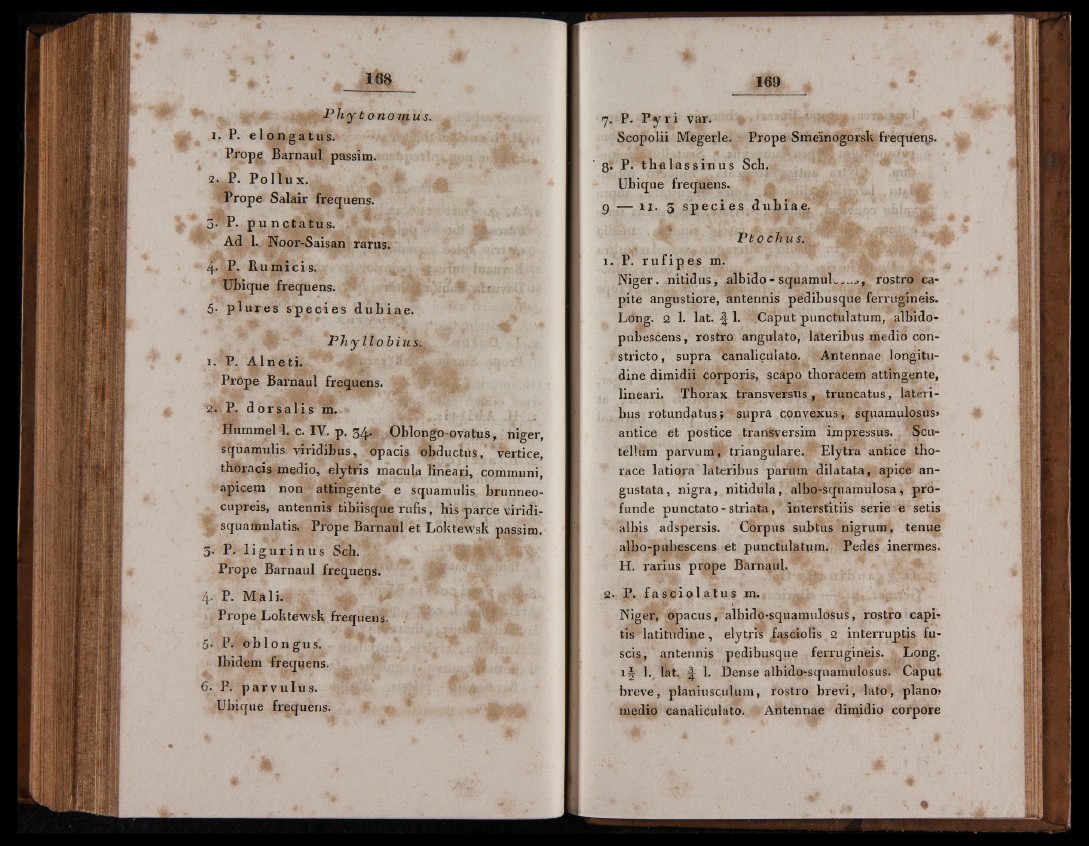 168
Phytonomus.
1. P. elongatus.
Prope Barnaul passim.
2. P. Pollux.
Prope Salair frequens.
3. P. punctatus.
Ad l. Noor-Saisan rarus.
4. P. Rumicis.
Ubique frequens.
5. plures species dubiae.
Phyllobius.
1. P. Alneti.
Prope Barnaul frequens.
2. P. dorsalis m.
Hummel l. c. IV. p. 34. Oblongo-ovatus, niger,
squamulis viridibus, opacis obductus, vertice,
thoracis medio, elytris macula lineari, communi,
apicem non attingente e squamulis brunneo-
cupreis, antennis tibiisque rufis, his parce viridi-
squamulatis. Prope Barnaul et Loktewsk passim.
3. P. ligurinus Sch.
Prope Barnaul frequens.
4. P. Mali.
Prope Loktewsk frequens.
5. P. oblongus.
Ibidem frequens.
6. P. parvulus.
Ubique frequens.
169
7. P. Pyri var.
Scopolii Megerle. Prope Smeïnogorsk frequens.
8. P. thalassinus Sch.
Ubique frequens.
9 — 11. 3 species dubiae.
Ptochus.
1. P. rufipes m.
Niger. nitidus, albido-rostro ca-
pite angustiore, antennis pedibusque ferrugineis.
Long. 2 l. lat. ¾ l. Caput punctulatum, albido-
pubescens, rostro angulato, lateribus medio con-
stricto, supra canaliculato. Antennae longitu-
dine dimidii corporis, scapo thoracem attingente,
lineari. Thorax transversus, truncatus, lateri-
bus rotundatus; supra convexus, squamulosus,
antice et postice transversim impressus. Scu-
tellum parvum, triangulare. Elytra antice tho-
race latiora lateribus parum dilatata, apice an-
gustata, nigra, nitidula, albo-squamulosa, pro-
funde punctato-striata, interstitiis serie e setis
albis adspersis. Corpus subtus nigrum, tenue
albo-pubescens et punctulatum. Pedes inermes.
H. rarius prope Barnaul.
2. P. fasciolatus m.
Niger, opacus, albido-squamulosus, rostro capi-
tis latitudine, elytris fasciolis 2 interruptis fu-
scis, antennis pedibusque ferrugineis. Long.
1½ l. lat. ¾ l. Dense albido-squamulosus. Caput
breve, planiusculum, rostro brevi, lato, plano,
medio canaliculato. Antennae dimidio corpore